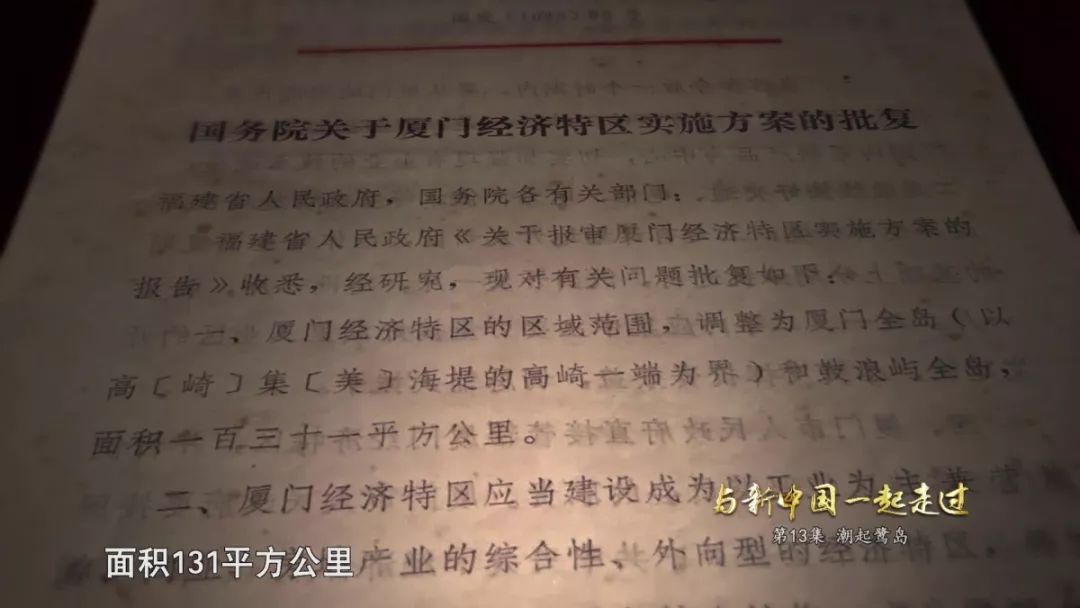 国务院关于厦门经济特区实施方案的批复
福建省人民政府，国务院各有关部门：
福建省人民政府《关于报审厦门经济特区实施方案的
报告》收悉，经研究，现对有关问题批复如下：
一、厦门经济特区的区域范围，调整为厦门全岛（以
高〔崎〕集〔美〕海堤的高崎一端为界）和鼓浪屿全岛，
面积一百三十一平方公里。
二、厦门经济特区应当建设成为以工业为主兼营
产业的综合性、外向型的经济特区，
与新中国一起走过
第13集 潮起鹭岛
面积131平方公里